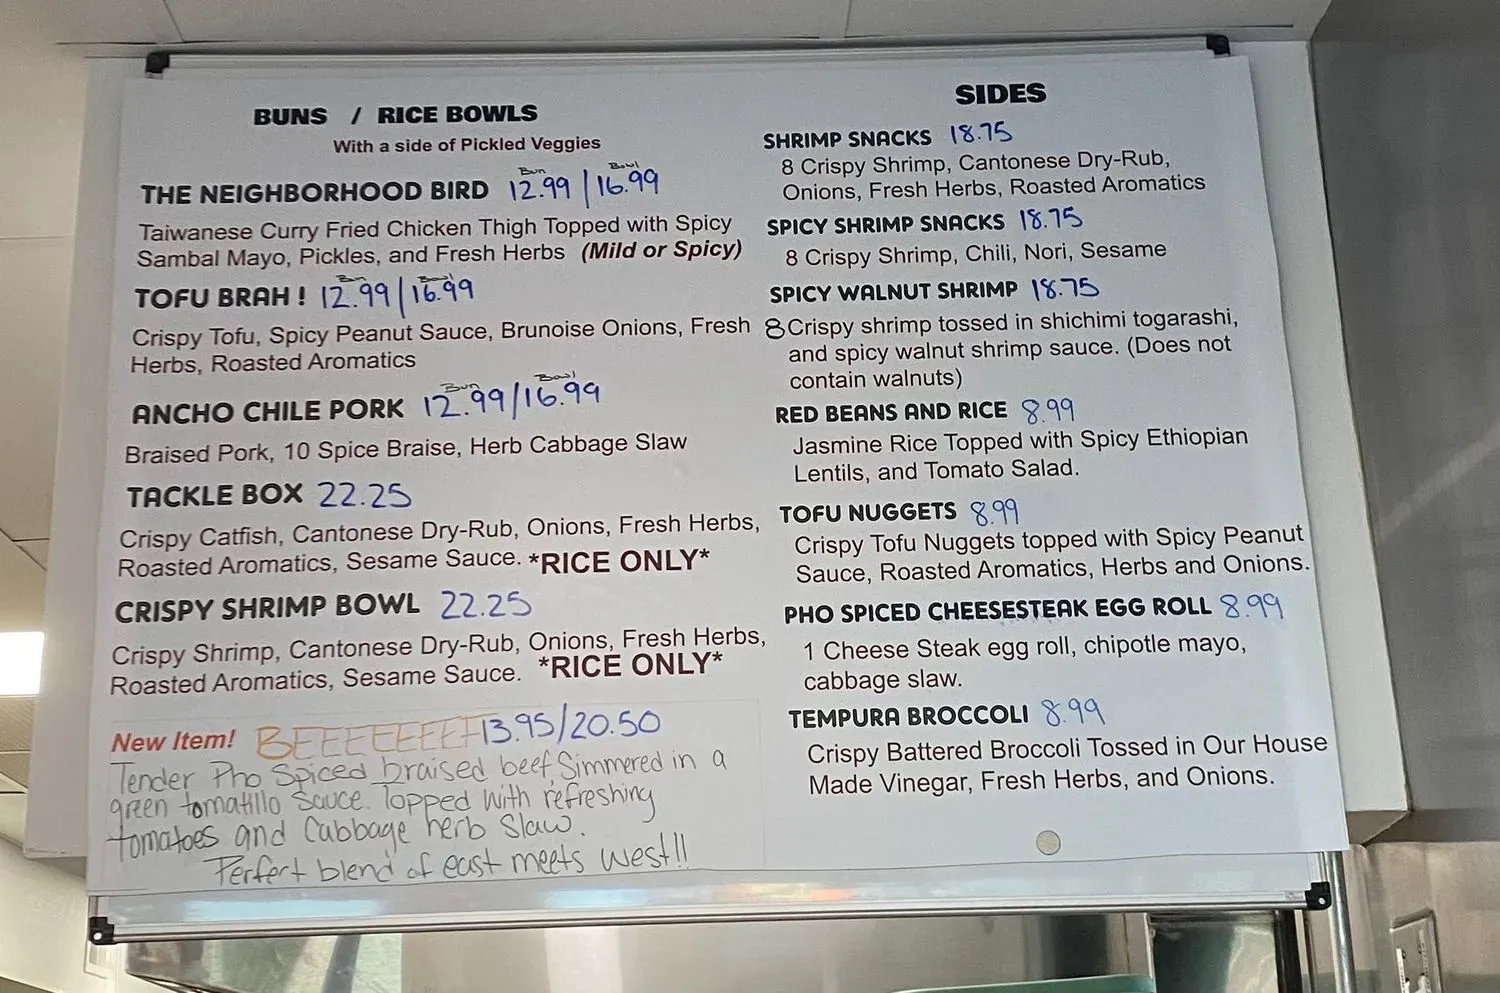 BUNS / RICE BOWLS
With a side of Pickled Veggies
Bun Bowl
THE NEIGHBORHOOD BIRD 12.99 | 16.99
Taiwanese Curry Fried Chicken Thigh Topped with Spicy
Sambal Mayo, Pickles, and Fresh Herbs (Mild or Spicy)
Bun Bowl
TOFU BRAH ! 12.99 | 16.99
Crispy Tofu, Spicy Peanut Sauce, Brunoise Onions, Fresh
Herbs, Roasted Aromatics
Bun Bowl
ANCHO CHILE PORK 12.99/16.99
Braised Pork, 10 Spice Braise, Herb Cabbage Slaw
TACKLE BOX 22.25
Crispy Catfish, Cantonese Dry-Rub, Onions, Fresh Herbs,
Roasted Aromatics, Sesame Sauce. *RICE ONLY*
CRISPY SHRIMP BOWL 22.25
Crispy Shrimp, Cantonese Dry-Rub, Onions, Fresh Herbs,
Roasted Aromatics, Sesame Sauce. *RICE ONLY*
New Item! BEEEEEEEF 13.95/20.50
Tender Pho Spiced braised beef, Simmered in a
green tomatillo sauce. Topped with refreshing
tomatoes and Cabbage herb Slaw.
Perfert blend of east meets west!!
SIDES
SHRIMP SNACKS 18.75
8 Crispy Shrimp, Cantonese Dry-Rub,
Onions, Fresh Herbs, Roasted Aromatics
SPICY SHRIMP SNACKS 18.75
8 Crispy Shrimp, Chili, Nori, Sesame
SPICY WALNUT SHRIMP 18.75
8 Crispy shrimp tossed in shichimi togarashi,
and spicy walnut shrimp sauce. (Does not
contain walnuts)
RED BEANS AND RICE 8.99
Jasmine Rice Topped with Spicy Ethiopian
Lentils, and Tomato Salad.
TOFU NUGGETS 8.99
Crispy Tofu Nuggets topped with Spicy Peanut
Sauce, Roasted Aromatics, Herbs and Onions.
PHO SPICED CHEESESTEAK EGG ROLL 8.99
1 Cheese Steak egg roll, chipotle mayo,
cabbage slaw.
TEMPURA BROCCOLI 8.99
Crispy Battered Broccoli Tossed in Our House
Made Vinegar, Fresh Herbs, and Onions.